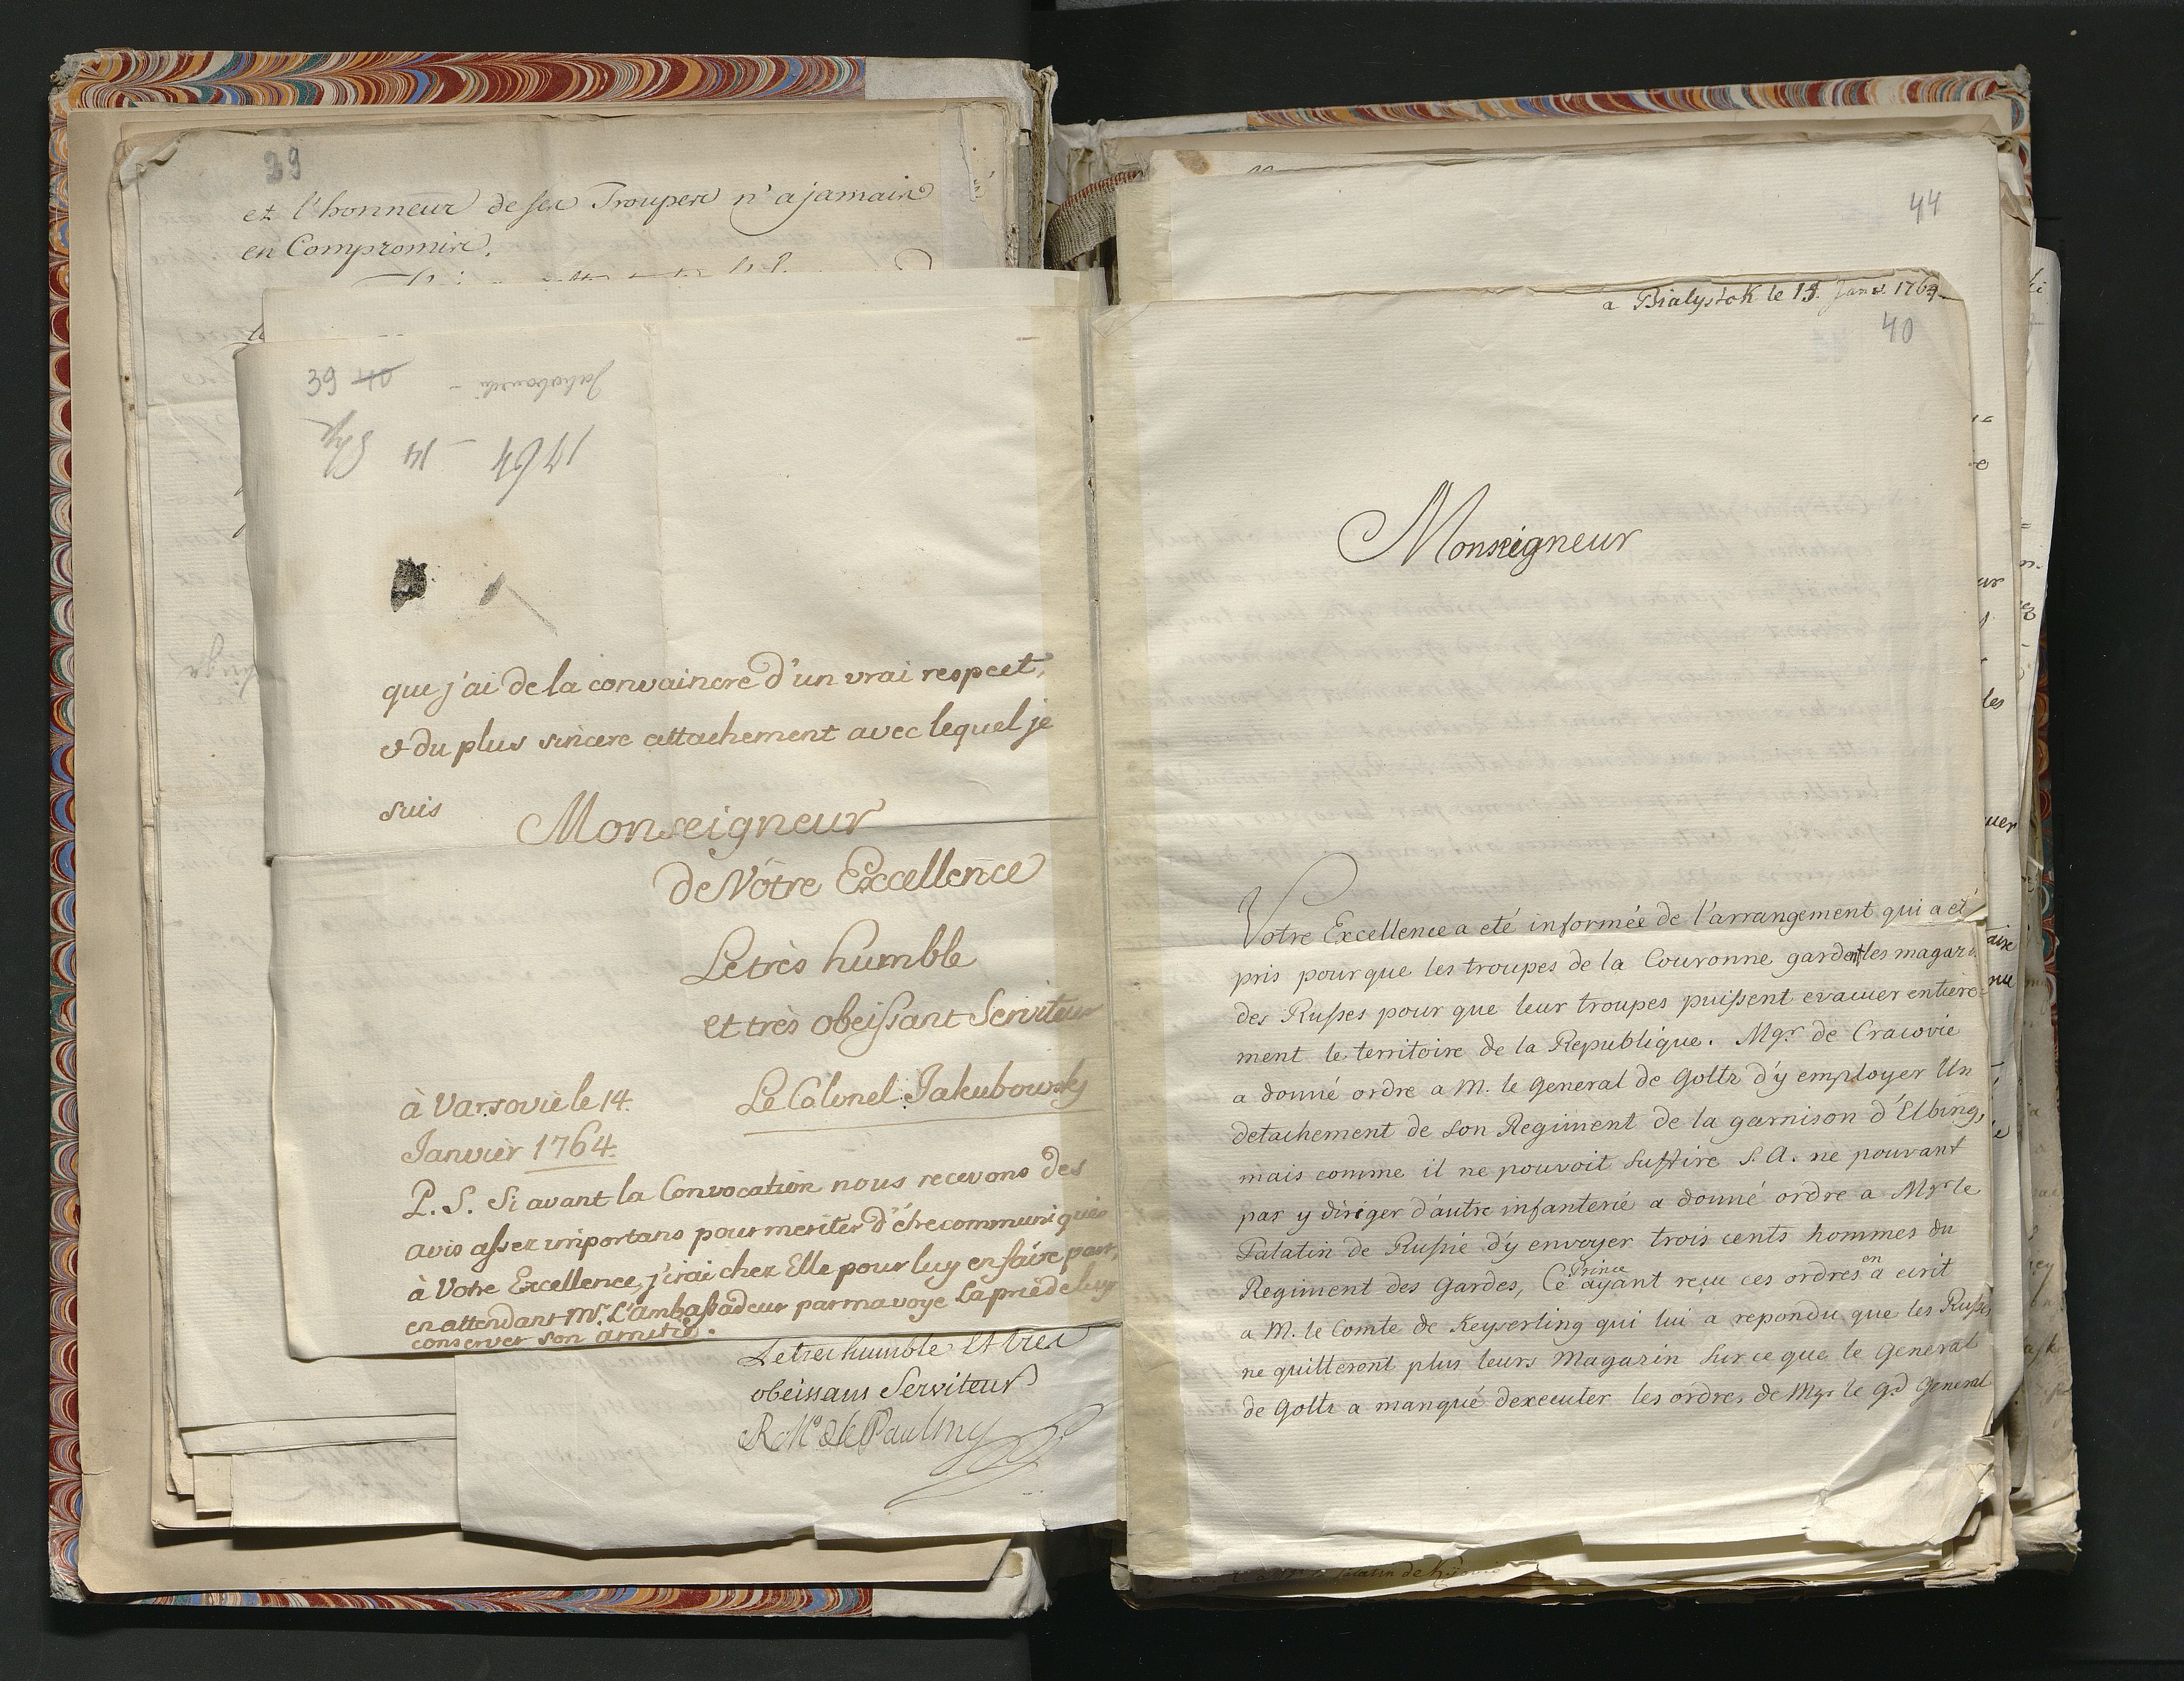 39
et l'honneur de ses Troupes n'a jamais
en Compromis.
39 40
Jakubowski -
1764 - 14
que j'ai de la convaincre d'un vrai respect,
& du plus sincere attachement avec lequel je
suis
Monseigneur
de Vôtre Excellence
Le très humble
et très obeissant Serviteur
Le Colonel Jakubowsky
à Varsovie le 14.
Janvier 1764.
P. S. Si avant la Convocation nous recevons des
avis assez importans pour meriter d'être communiqués
à Votre Excellence, j'irai chez Elle pour luy en faire part,
en attendant Mr. L'Ambassadeur par ma voye La prie de luy
conserver son amitié.
Le tres humble et tres
obeissans Serviteur
R Mis de Paulmy
44
a Bialystok le 15. Janv. 1764
40
Monseigneur
Votre Excellence a eté informée de l'arrangement qui a et
pris pour que les troupes de la Couronne gardent les magazi
des Russes pour que leur troupes puissent evacuer entiere=
ment le territoire de la Republique. Mgr. de Cracovie
a donné ordre a M. le General de Goltz d'y employer Un
detachement de son Regiment de la garnison d'Elbing,
mais comme il ne pouvoit suffire S. A. ne pouvant
pas y diriger d'autre infanterie a donné ordre a Mgr le
Palatin de Russie d'y envoyer trois cents hommes du
Regiment des Gardes, Ce Prince ayant reçu ces ordres en a ecrit
a M. le Comte de Keyserling qui lui a repondu que les Russes
ne quitteront plus leurs Magazin sur ce que le General
de Goltz a manqué dexecuter les ordres de Mgr le Gd General